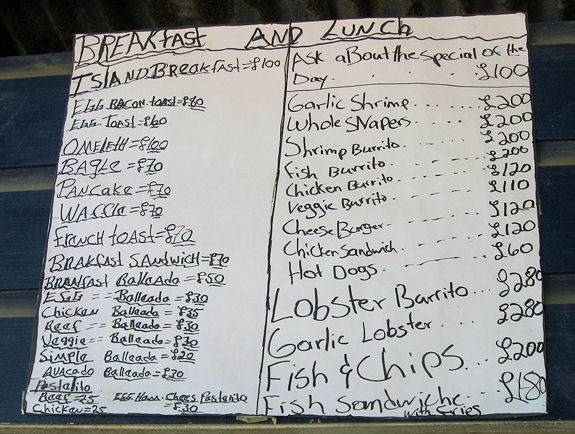 BREAKfast AND LUNCH
ISLAND BreakfasT=£100
EGG BACON TOAST=£80
EGG TOAST=£60
OMELETH=£100
BAGLE=£70
PANCAKe=£70
WAFFLe=£70
frENCH TOAST=£70
BREAKfAST SANDWICH=£70
Balleada=£50
EGG -- Balleada=£30
Chicken Balleada=£35
Beef -- Balleada=£30
Veggie-- Balleada=£30
SimPle Balleada=£20
AVACADO Balleada=£30
Pastelito
Beef=25 EGG.Ham.Chees Pastelito
Chicken=25 =£30
Ask aBout the special of the
Day. . . . £100
Garlic Shrimp.... £200
Whole SNapers. £200
Shrimp Burrito. £200
Fish Burrito. £200
Chicken Burrito. £120
Veggie Burrito. £110
Cheese Burger. £120
Chicken Sandwich. £120
Hot Dogs. £60
Lobster Burrito... £280
Garlic Lobster. £280
Fish & Chips... £200
Fish Sandwiche. £180
with fries